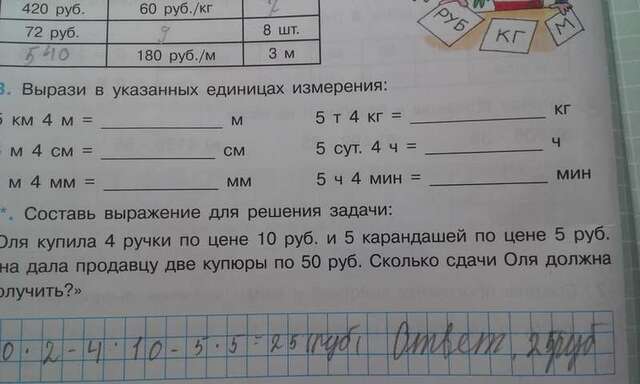 420 руб. 60 руб./кг
72 руб. 9 8 шт.
540 180 руб./м 3 м
РУБ КГ М
3. Вырази в указанных единицах измерения:
км 4 м = ____ м 5 т 4 кг = ____ кг
м 4 см = ____ см 5 сут. 4 ч = ____ ч
м 4 мм = ____ мм 5 ч 4 мин = ____ мин
*. Составь выражение для решения задачи:
Оля купила 4 ручки по цене 10 руб. и 5 карандашей по цене 5 руб.
на дала продавцу две купюры по 50 руб. Сколько сдачи Оля должна
олучить?»
0·2-4·10-5·5= Ответ,